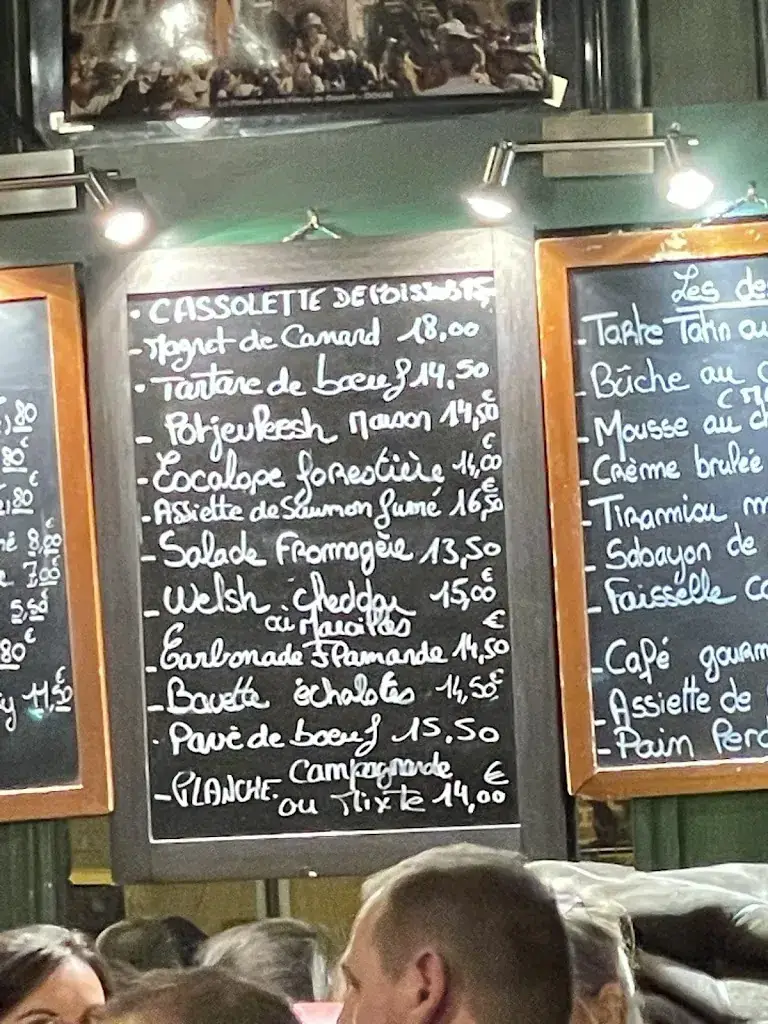 ) 80
80€
2,80
né 8,80
e 7,00
5,50
80€
y 11,50
• CASSOLETTE DE POISSONS 15,
- Magret de Canard 18,00
• Tartare de boeuf 14.50
- Potjevleesh Maison 14,50€
- Escalope forestière 14,00€
- Assiette de Saumon fumé 16,50€
- Salade Fromagère 13,50
- Welsh : cheddar 15,00€
ou Maroilles
- Carbonade Flamande 14,50€
- Bavette échalotes 14,50€
• Pavé de boeuf 15.50
- PLANCHE Campagnarde
ou Mixte 14,00€
Les des
- Tarte Tatin au
- Bûche au c
- Mousse au ch
- Crème brulée
- Tiramiou m
- Sabayon de
- Faisselle co
- Café gourm
- Assiette de
- Pain Perd